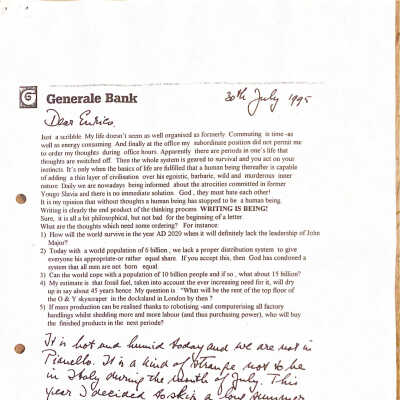 G Generale Bank
30th July 1995
Dear Enrico,
Just a scribble My life doesn't seem as well organised as formerly Commuting is time -as
well as energy consuming. And finally at the office my subordinate position did not permit me
to order my thoughts during office hours. Apparently there are periods in one's life that
thoughts are switched off. Then the whole system is geared to survival and you act on your
instincts. It's only when the basics of life are fulfilled that a human being thereafter is capable
of adding a thin layer of civilisation over his egoistic, barbaric, wild and murderous inner
nature. Daily we are nowadays being informed about the atrocities committed in former
Yougo Slavia and there is no immediate solution. God , they must hate each other!
It is my opinion that without thoughts a human being has stopped to be a human being.
Writing is clearly the end product of the thinking process WRITING IS BEING!
Sure, it is all a bit philosophical, but not bad for the beginning of a letter
What are the thoughts which need some ordering? For instance:
1) How will the world survive in the year AD 2020 when it will definitely lack the leadership of John
Major?
2) Today with a world population of 6 billion , we lack a proper distribution system to give
everyone his appropriate-or rather equal share. If you accept this, then God has condoned a
system that all men are not born equal.
3) Can the world cope with a population of 10 billion people and if so , what about 15 billion?
4) My estimate is that fossil fuel, taken into account the ever increasing need for it, will dry
up in say about 45 years hence My question is "What will be the rent of the top floor of
the O & Y skyscraper in the dockland in London by then ?
5) If mass production can be realised thanks to robotising -and computerising all factory
handlings whilst shedding more and more labour (and thus purchasing power), who will buy
the finished products in the next periode?
It is hot and humid today and we are not in
Pianello. It is a kind of strange not to be
in Italy during the month of July. This
year I decided to skip a long summer